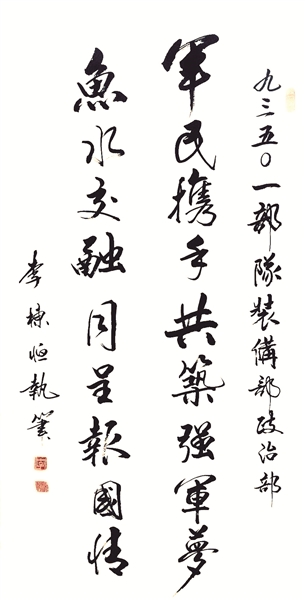 九三五〇一部隊裝備部政治部
军民携手共築强軍夢
魚水交融同呈報國情
李棟恒執筆